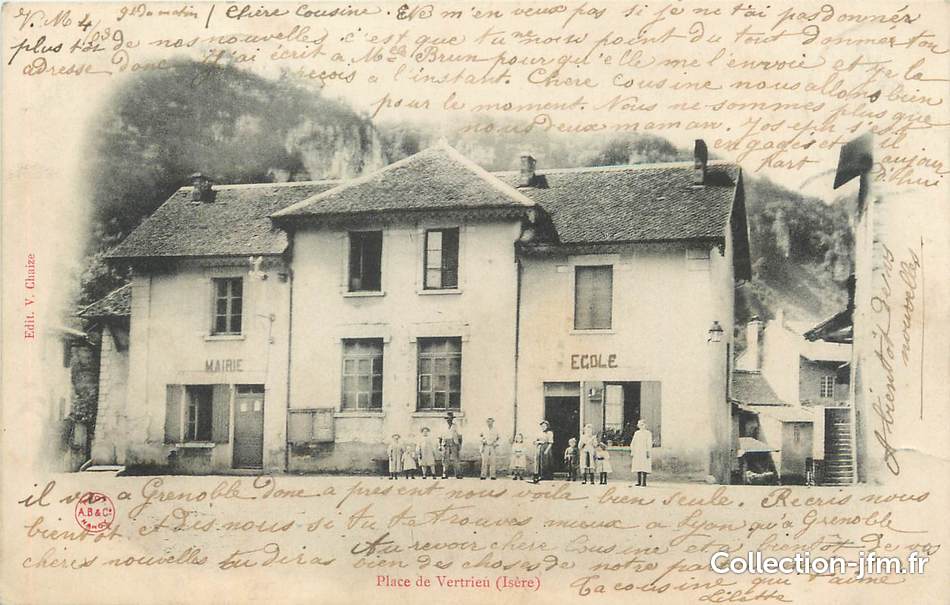 V. M 4 9h du matin / Chère Cousine. Ne m'en veux pas si je ne t'ai pas donnér
plus tôt de nos nouvelles c'est que tu ne nou point du tout donner ton
adresse donc j'ai écrit a Mce Brun pour qu'elle me l'envoie et je la
reçois a l'instant. Chère Cousine nous allons bien
pour le moment. Nous ne sommes plus que
nous deux maman. s'est
engages et il
part aujour
d'hui
A bientot de vos
nouvelles
Edit. V. Chaize
MAIRIE
ECOLE
il va a Grenoble donc a present nous voila bien seule. Recris nous
bientot et dis nous si tu te trouves mieux a Lyon qu'a Grenoble
Au revoir chère Cousine et a bientot de vos
chères nouvelles tu diras bien des choses de notre part
A.B & Cie
NANCY
Place de Vertrieu (Isère)
Ta cousine qui t'aime
Lilette
Collection-jfm.fr